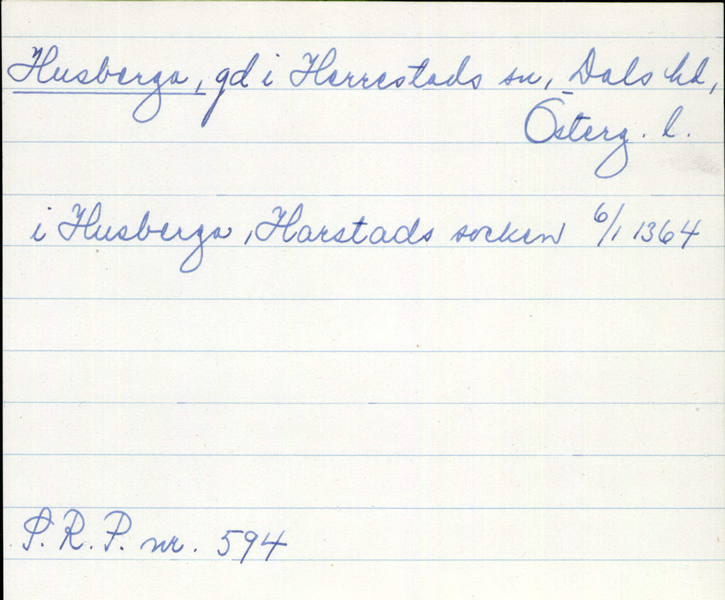 Husberga, gd i Herrestads sn, Dals hd,
Österg. l.
i Husberga, Harstads socken 6/1 1364
S.R.P. nr. 594